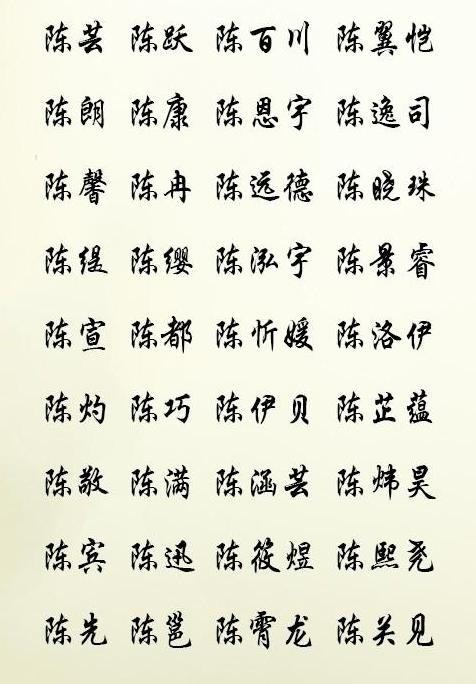 陈芸 陈跃 陈百川 陈翼恺
陈朗 陈康 陈恩宇 陈逸司
陈馨 陈冉 陈远德 陈晓珠
陈缇 陈缨 陈泓宇 陈景睿
陈宣 陈都 陈忻媛 陈洛伊
陈灼 陈巧 陈伊贝 陈芷蕴
陈敬 陈满 陈涵芸 陈炜昊
陈宾 陈迅 陈筱煜 陈熙尧
陈先 陈邕 陈霄龙 陈关见